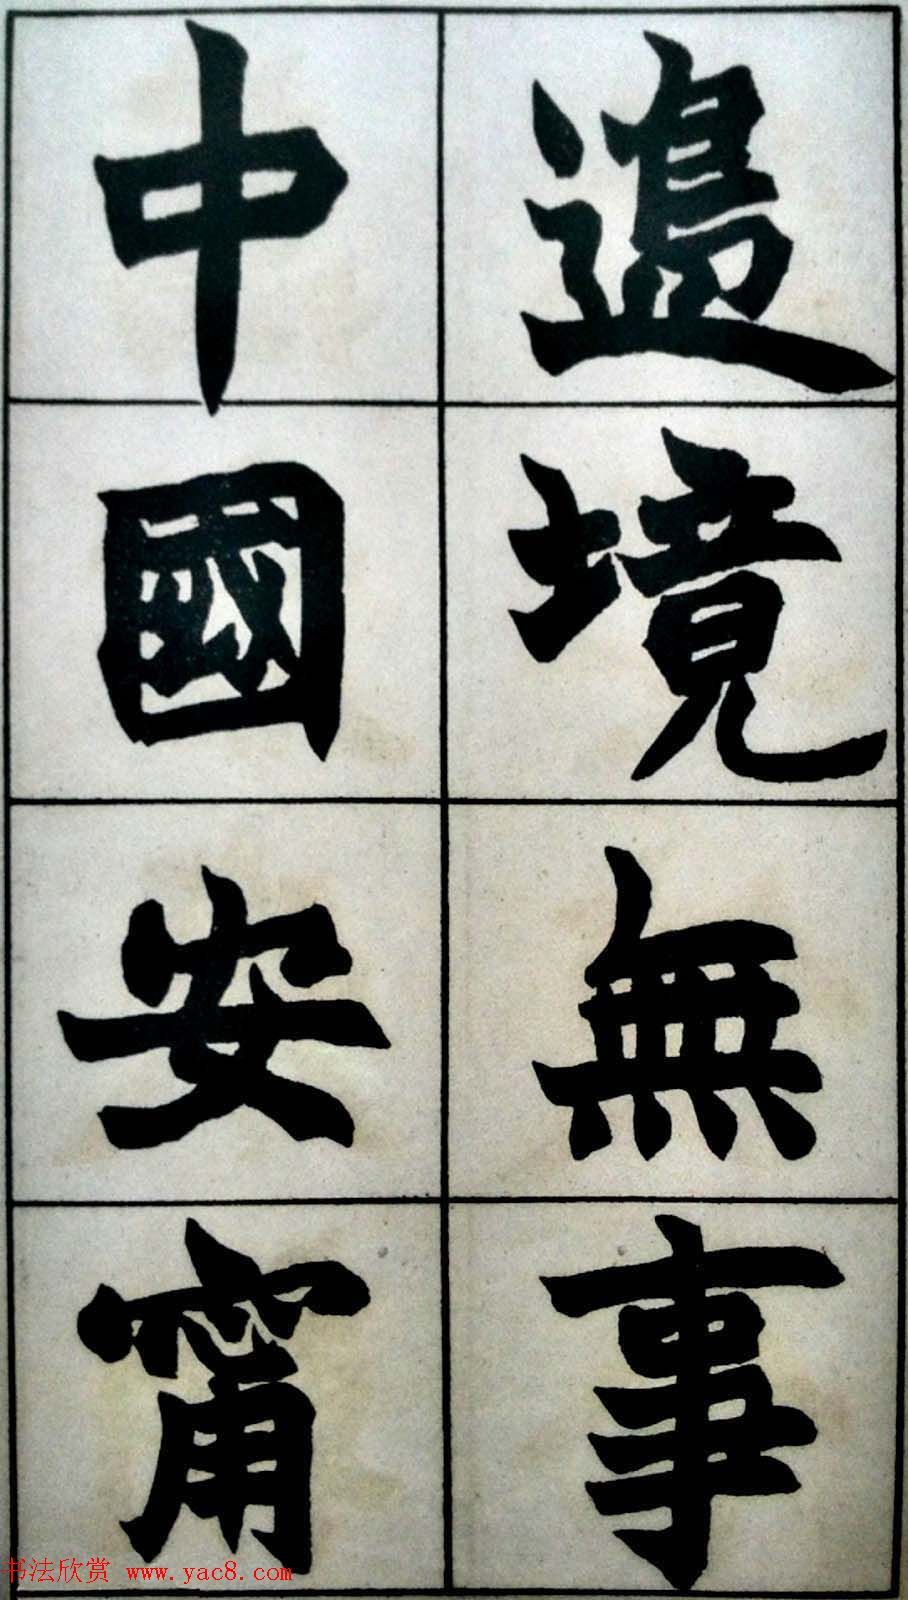 邉境無事
中國安甯
书法欣赏 www.yac8.com